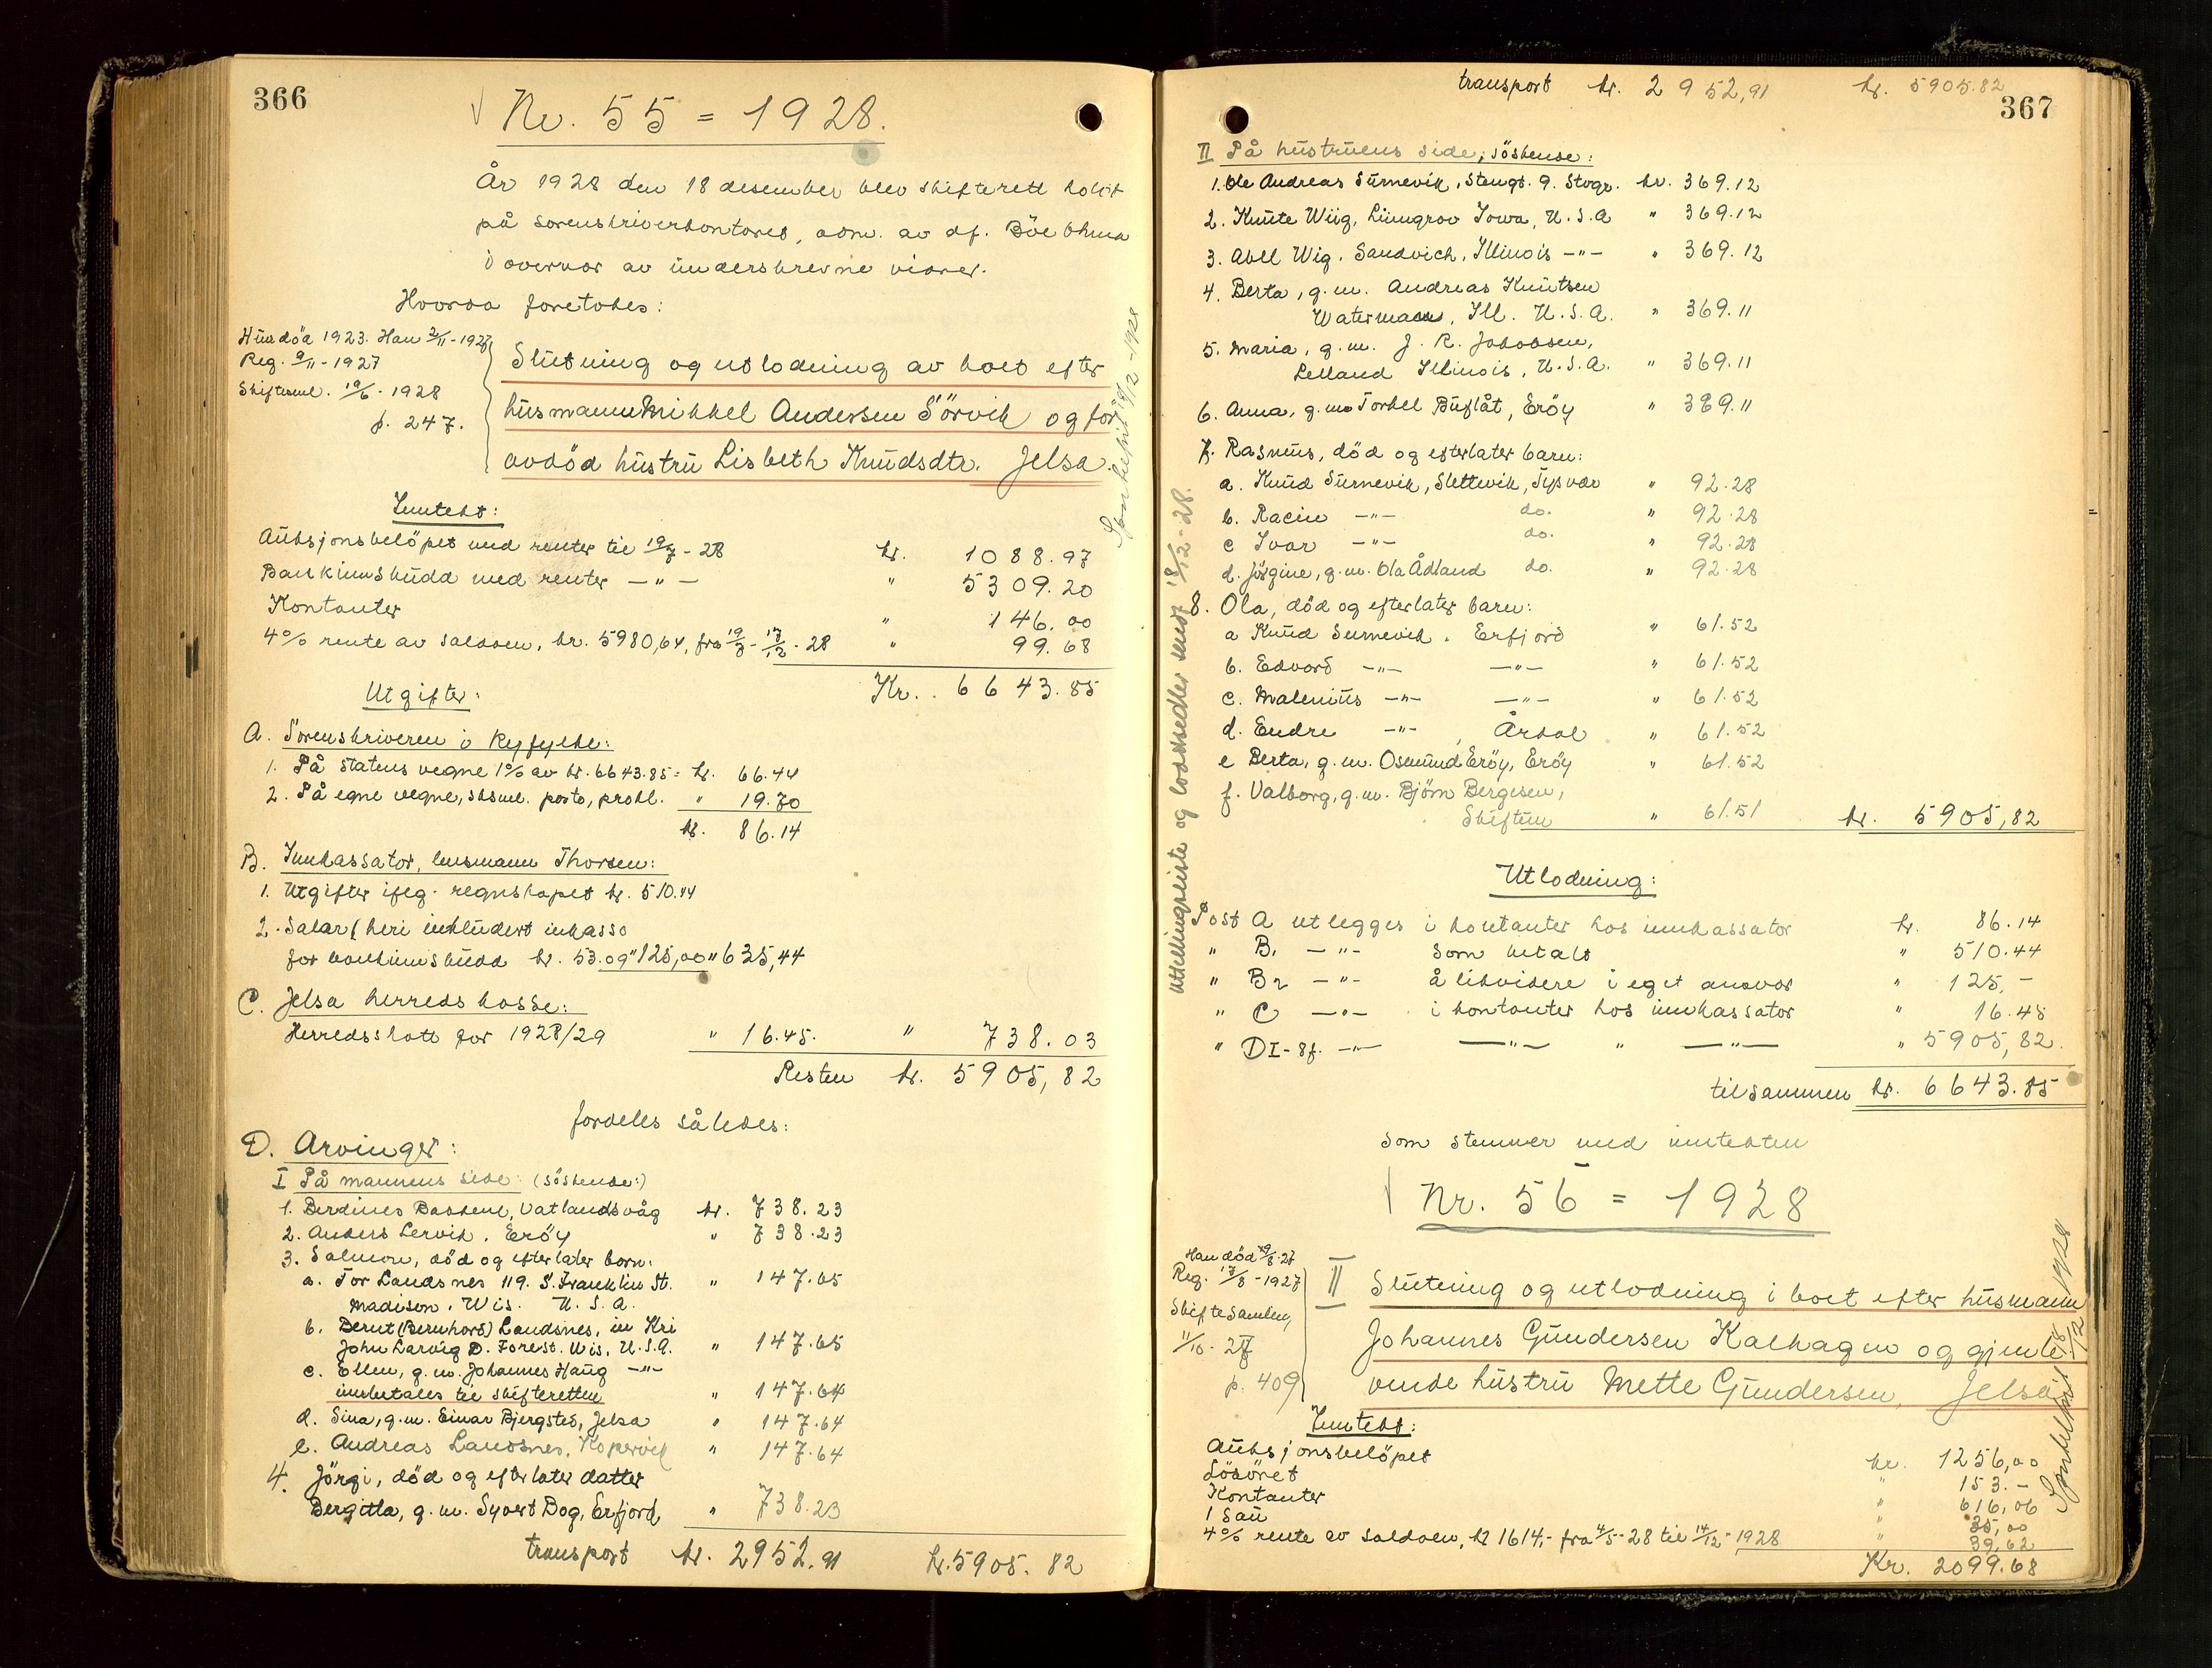 366
Nr. 55 = 1928.
År 1928 den 18 desember blev skifterett holdt
på sorenskriverkontoret, adm. av df. Böe
i overvær av underskrevne vidner.
Hvorda foretokes:
Hun död 1923. Han 2/11 - 1927
Reg. 9/11 - 1927
Skiftesml. 19/6 - 1928
p. 247.
Slutning og utlodning av boet efter
husmann Mikkel Andersen Sörvik og for
avdöd hustru Lisbeth Knudsdtr. Jelsa.
Inntekt:
Auksjonsbelöpet med renter til 19/7 - 28 kr. 1088.97
Bankinnskudd med renter —"— " 5309.20
Kontanter " 146.00
4% rente av saldoen, kr. 5980,64, fra 19/7 - 17/12 - 28 " 99.68
Kr. 6643.85
Utgifter:
A. Sorenskriveren i Ryfylke:
1. På statens vegne 1% av kr. 6643.85 = kr. 66.44
2. På egne vegne, sksml. porto, prokl. " 19.70
kr. 86.14
B. Innkassator, lensmann Thorsen:
1. Utgifter ifög. regnskapet kr. 510.44
2. Salær (heri inkludert inkasso
for bankinnskudd kr. 53.09 " 125,00 " 635,44
C. Jelsa herredskasse:
Herredsskatt for 1928/29 " 16.45. " 738.03
Resten kr. 5905,82
fordeles således:
D. Arvinger:
I På mannens side: (söskende:)
1. Berdines Bakken, Vatlandsvåg kr. 738.23
2. Anders Lervik, Eröy " 738.23
3. Salmon, död og efterlater barn:
a. Tor Landsnes 119. S. Franklin St. " 147.65
Madison. Wis. U.S.A.
b. Bernt (Bernhard) Landsnes, in Kri
John Larvig D. Forest. Wis. U.S.A. " 147.65
c. Ellen, g.m. Johannes Haug —"—
innbetales til skifteretten " 147.64
d. Sina, g.m. Einar Bjergsted, Jelsa " 147.64
e. Andreas Landsnes, Kopervik " 147.64
4. Jörgi, död og efterlater datter
Bergitta, g.m. Syvert Bog, Erfjord " 738.23
transport kr. 2952.91 kr. 5905.82
367
transport kr. 2952,91 kr. 5905.82
II På hustruens side, söskende:
1. Ole Andreas Surnevik, Stengt. 9. Stvgr. kr. 369.12
2. Knute Wiig, Linngrov Iowa, U.S.A " 369.12
3. Abel Wig, Sandvich, Illinois —"— " 369.12
4. Berta, g.m. Andreas Knutsen
Waterman, Ill. U.S.A. " 369.11
5. Maria, g.m. J. R. Jakobsen,
Lelland Illinois, U.S.A. " 369.11
6. Anna, g.m. Torkel Buflåt, Eröy " 369.11
7. Rasmus, död og efterlater barn:
a. Knud Surnevik, Slettevik, Tysvær " 92.28
b. Racin —"— do. " 92.28
c Ivar —"— do. " 92.28
d. Jörgine, g.m. Ola Ådland do. " 92.28
8. Ola, död og efterlater barn:
a Knud Surnevik. Erfjord " 61.52
b. Edvard —"— —"— " 61.52
c. Malenius —"— —"— " 61.52
d. Endre —"—, Årdal " 61.52
e Berta, g.m. Osmund Eröy, Eröy " 61.52
f. Valborg, g.m. Björn Bergesen,
Skiftun " 61.51 kr. 5905,82
Utlodning:
Post A utlegges i kontanter hos innkassator kr. 86.14
" B1 —"— som betalt " 510.44
" B2 —"— å likvidere i eget ansvar " 125,-
" C —"— i kontanter hos innkassator " 16.45
" D I-8f. —"— —"— " —"— " 5905,82.
tilsammen kr. 6643.85
som stemmer med inntekten
Utlodningsliste og loddsedler sendt 18/12-28.
Nr. 56 = 1928
Han död 19/8-27
Reg. 17/8 - 1927
Skiftesamling
11/10 - 27
p. 409
II Slutning og utlodning i boet efter husmann
Johannes Gundersen Kalhagen og gjenle
vende hustru Mette Gundersen, Jelsa
Inntekt:
Auksjonsbelöpet kr. 1256,00
Lösöret " 153.-
Kontanter " 616,06
1 Sau " 35,00
4% rente av saldoen, kr 1614,- fra 4/5-28 til 14/12-1928 " 39,62
Kr. 2099.68